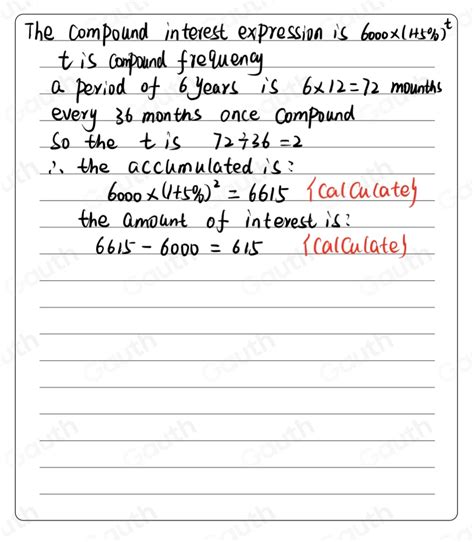 The compound interest expression is 6000×(1+5%)^t
t is compound frequency
a period of 6 years is 6×12=72 mounths
every 36 months once compound
So the t is 72÷36=2
∴ the accumulated is:
6000×(1+5%)² = 6615 {Calculate}
the amount of interest is:
6615 - 6000 = 615 {Calculate}